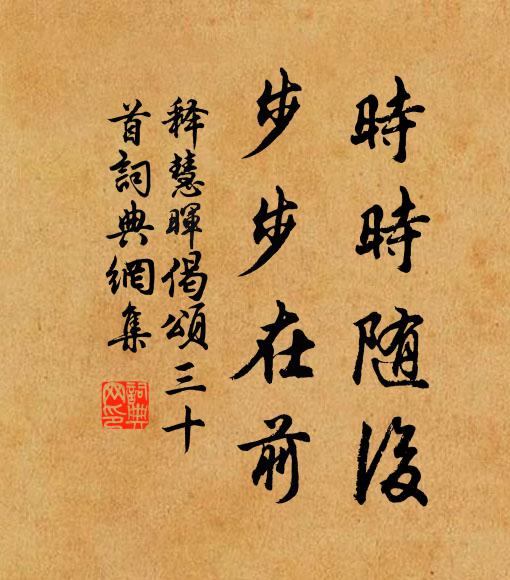 時時随後
步步在前
释慧暉偈頌三十
首詞典網集
詞典網印